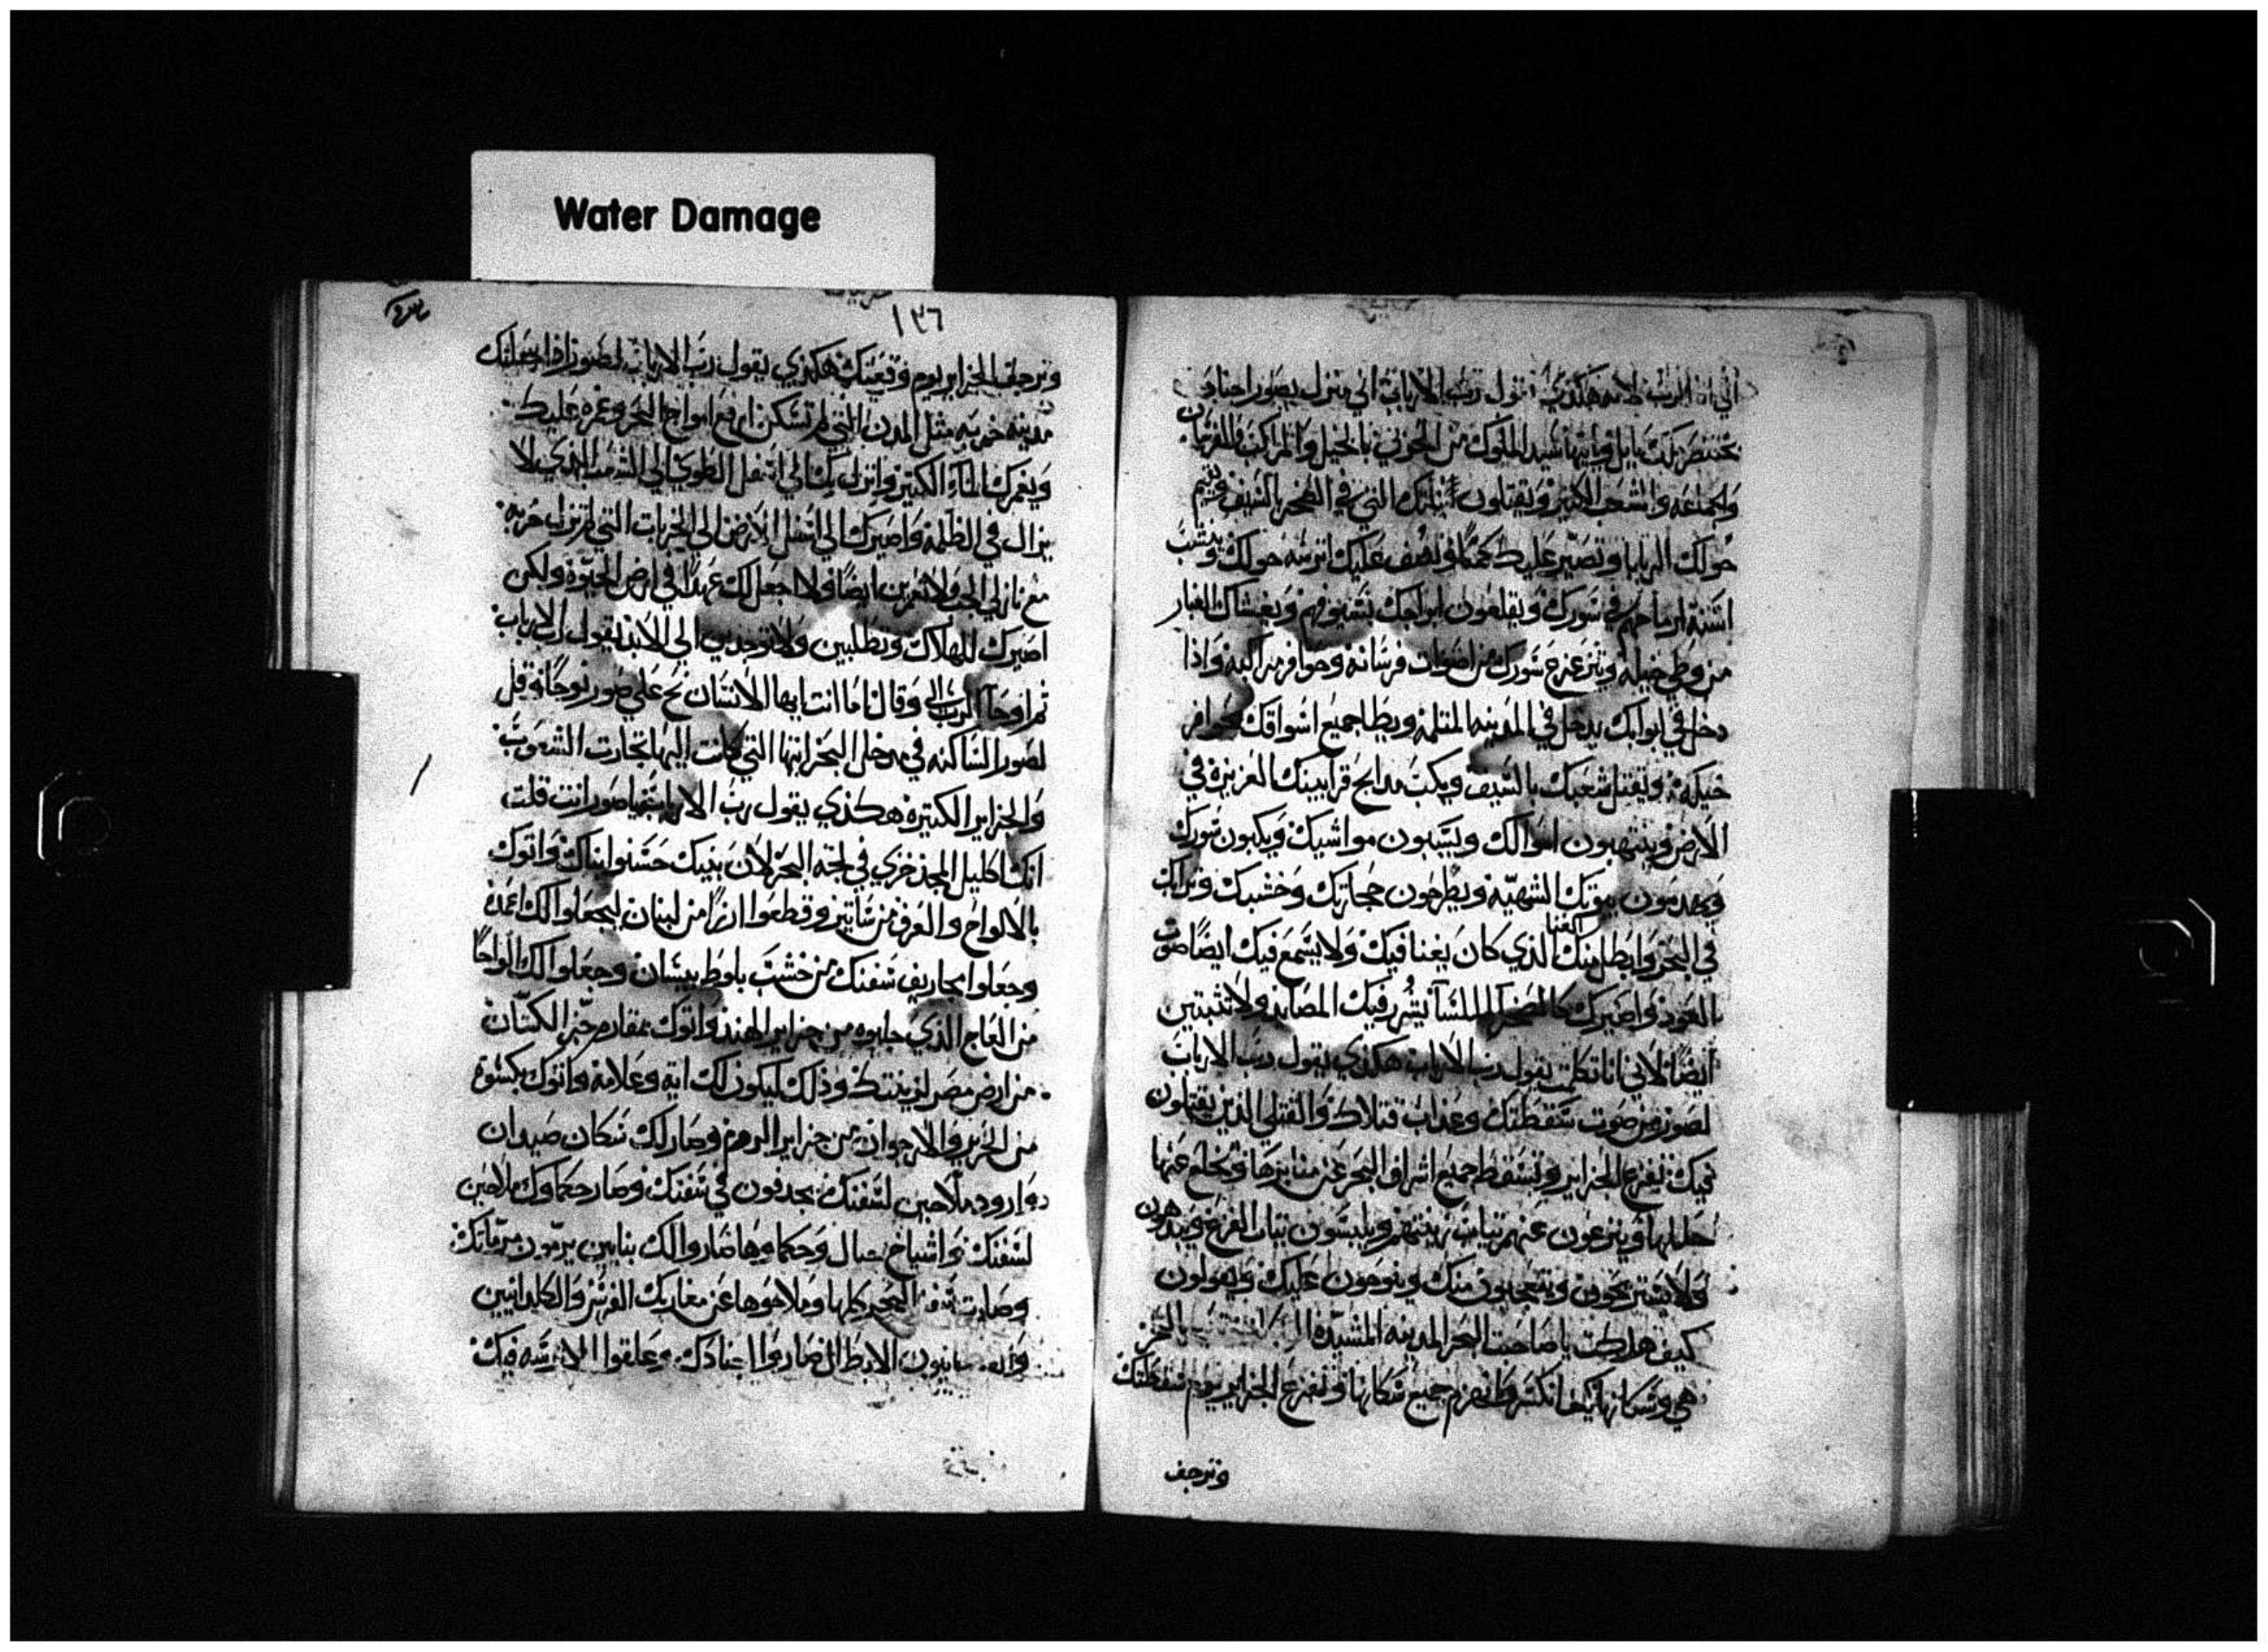 Water Damage
اني انا الرب لانه هكذى يقول رب الارباب اني منزل بصور اجناد
بختنصر ملك بابل وياتيها سيد الملوك من الحربي بالخيل والمراكب والفرسان
والجماعه والشعب الكثير ويقتلون بناتك التي في الصحر بالسيف ويقيم
حولك الربايا وتصير عليك كمنًا ويصف عليك اترسه حولك وينشب
اسنة ارماحهم في سورك ويقلعون ابراجك بسيوفهم ويغشاك الغبار
من وطي خيله ويتزعزع سورك من اصوات فرسانه وحوافر مراكبه واذا
دخل في ابوابك يدخل في المدينه المثلمه ويطا جميع اسواقك بحوافر
خيله ويقتل شعبك بالسيف ويكب مدابح قرابينك العزيزة في
الارض وينتهبون اموالك ويسبون مواشيك ويكبون سورك
ويهدمون بيوتك الشهيه ويطرحون حجارتك وخشبك وترابك
في البحر وابطل منك الغنا الذي كان يغنا فيك ولا يسمع فيك ايضًا صوت
العود واصيرك كالصخرا الملسا يشرر فيك المصايد ولا تثبتين
ايضًا لاني انا تكلمت يقول رب الارباب هكذي يقول رب الارباب
لصور من صوت سقطتك وعذاب قتلاك والقتلي الذين يقتلون
فيك تفزع الجزاير وتسقط جميع اشراف البحر عن منابرها وتخلع عنها
حللها وينزعون عنهم تياب زينتهم ويلبسون تياب الفزع ويبدهون
ولا يستريحون ويتعجبون منك وينوحون عليك ويقولون
كيف هلكت يا صاحبت البحر المدينه المشيده في البحر
هي وسكانها كيف انكسر وانهزم جميع سكانها وتفزع الجزاير يوم سقطتك
وترجف
١٣٦
وترجف الجزاير يوم وقعتك هكذي يقول رب الارباب لصور اذا جعلتك
مدينه خربه مثل المدن التي لم تسكن ارفع امواج البحر وغزه عليك
ويغمرك الماء الكثير وانزل بك الي اسفل الطوي الي الشعب الذي لا
يزال في الظلمه واصيرك الي اسفل الارض الي الخربات التي لم تزل خربه
مع نازلي الجب ولا تعمرين ايضًا ولا اجعل لك عهدًا في ارض الحيوة ولكن
اصيرك للهلاك وتطلبين ولا توجدين الي الابد يقول رب الارباب
ثم اوحا الرب الي وقال اما انت ايها الانسان نح علي صور نوحًا وقل
لصور الساكنه في مدخل البحر انها التي كانت اليها تجارت الشعوب
والجزاير الكثيرة هكذي يقول رب الارباب يا صور انت قلت
انك اكليل المجد فخري في لجة البحر لان بنيك حسنوا بناك واتوك
بالالواح والعرف من ساتين وقطعوا ارزًا من لبنان ليجعلوا لك اعمدة
وجعلوا مجاريف سفنك من خشب بلوط بيسان وجعلوا لك الواحًا
من العاج الذي جلبوه من جزاير الهند واتوك بمقارم خز الكتان
من ارض مصر لزينتك وذلك ليكون لك اية وعلامة واتوك بكسوة
من الحرير والارجوان من جزاير الروم وصار لك سكان صيدان
وارود ملاحين لسفنك يجدفون في سفنك وصار حكماوك ملاحين
لسفنك واشياخ جبال وحكماوها صاروا لك بنايين يرمون مرماتك
وصارت سفن البحر كلها وملاحوها عن مغاربك الفرس والكلدانيين
الابطال صاروا اجنادك وعلقوا الاترسه فيك